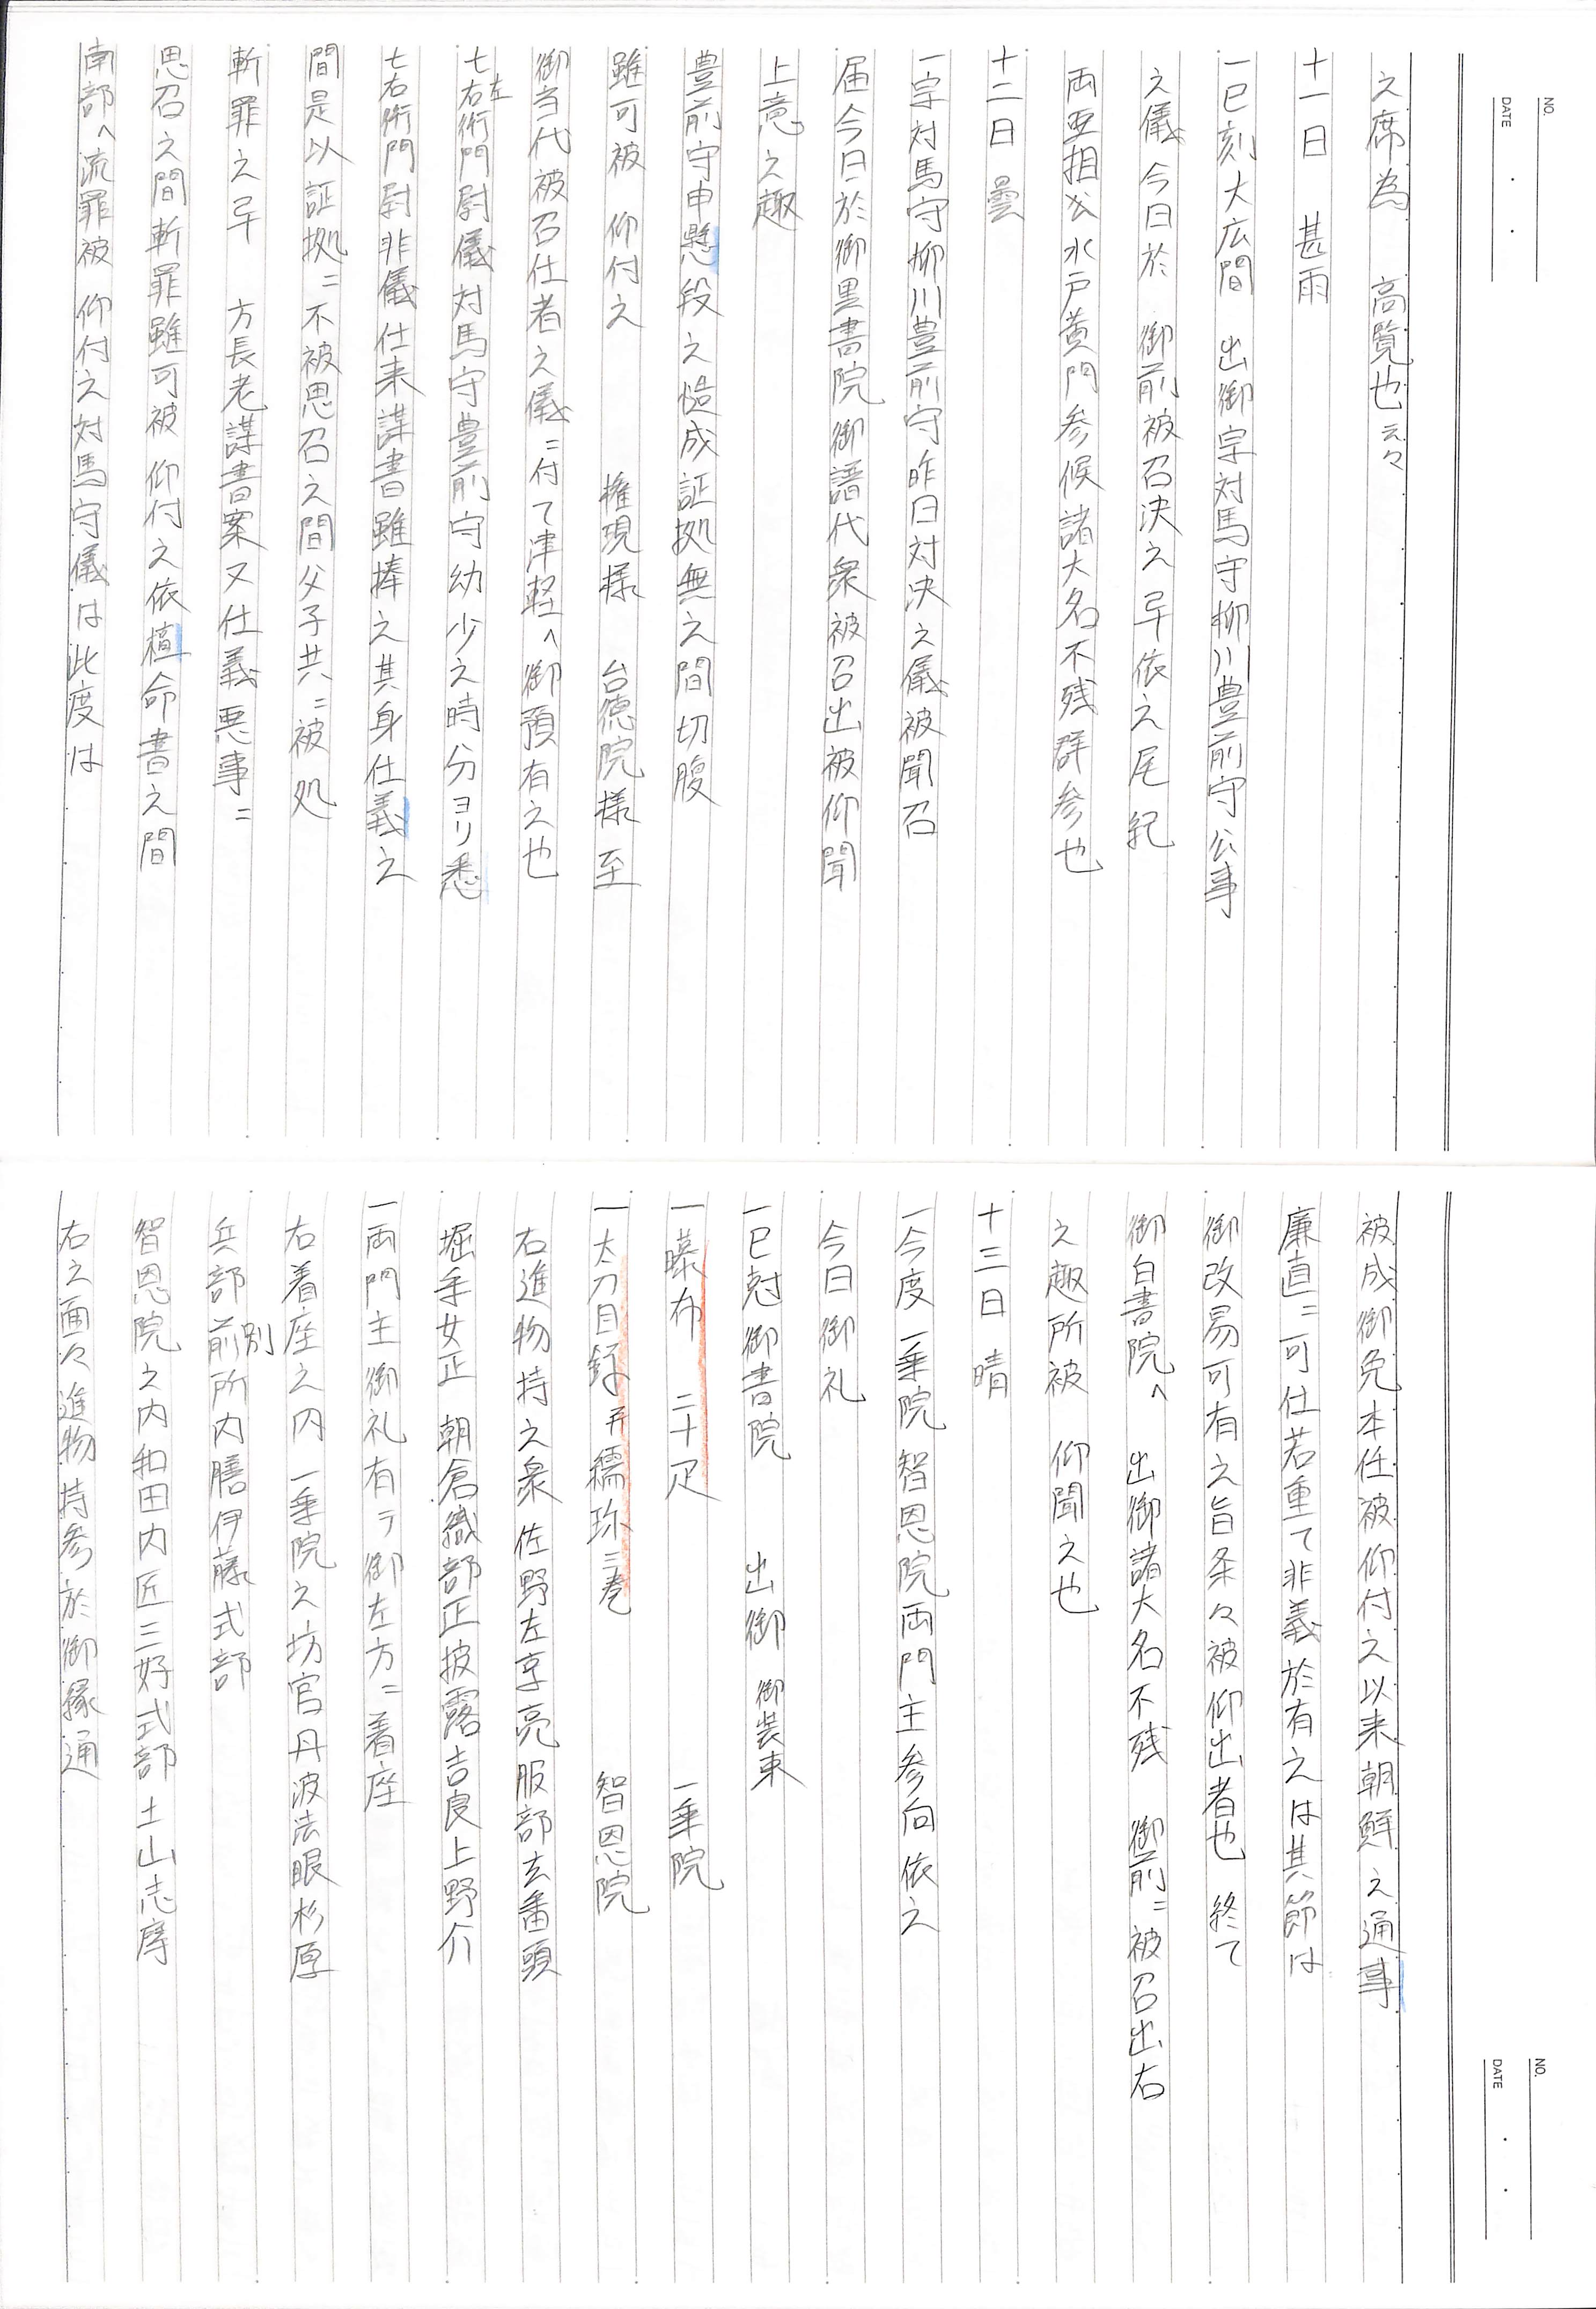 NO.
DATE
之席為　高覧也云々
十一日　甚雨
一巳刻大広間　出御宗対馬守柳川豊前守公事
之儀今日於　御前被召決之畢依之尾紀
両亜相公水戸黄門参候諸大名不残群参也
十二日　曇
一宗対馬守柳川豊前守昨日対決之儀被聞召
届今日於御黒書院御譜代衆被召出被仰聞
上意之趣
豊前守申懸段之慥成証拠無之間切腹
雖可被　仰付之　権現様　台徳院様至
御当代被召仕者之儀ニ付て津軽へ御預有之也
七左右衛門尉儀対馬守豊前守幼少之時分ヨリ悉
七右衛門尉非儀仕来謀書雖捧之其身仕義之
間是以証拠ニ不被思召之間父子共ニ被処
斬罪之畢　方長老謀書案文仕義悪事ニ
思召之間斬罪雖可被　仰付之依植命書之間
南部へ流罪被　仰付之対馬守儀は此度は
NO.
DATE
被成御免本任被仰付之以来朝鮮之通事
廉直ニ可仕若重て非義於有之は其節は
御改易可有之旨条々被仰出者也　終て
御白書院へ　出御諸大名不残　御前ニ被召出右
之趣所被　仰聞之也
十三日　晴
一今度一乗院智恩院両門主参向依之
今日御礼
一巳尅御書院　出御　御装束
一曝布　二十疋　一乗院
一太刀目録并繻珍三巻　智恩院
右進物持之衆佐野左京亮服部玄番頭
堀手女正　朝倉織部正披露吉良上野介
一両門主御礼有テ御左方ニ着座
右着座之内　一乗院之坊官丹波法眼杉原
兵部別前所内膳伊藤式部
智恩院之内和田内匠三好式部土山志摩
右之面々進物持参於御縁通